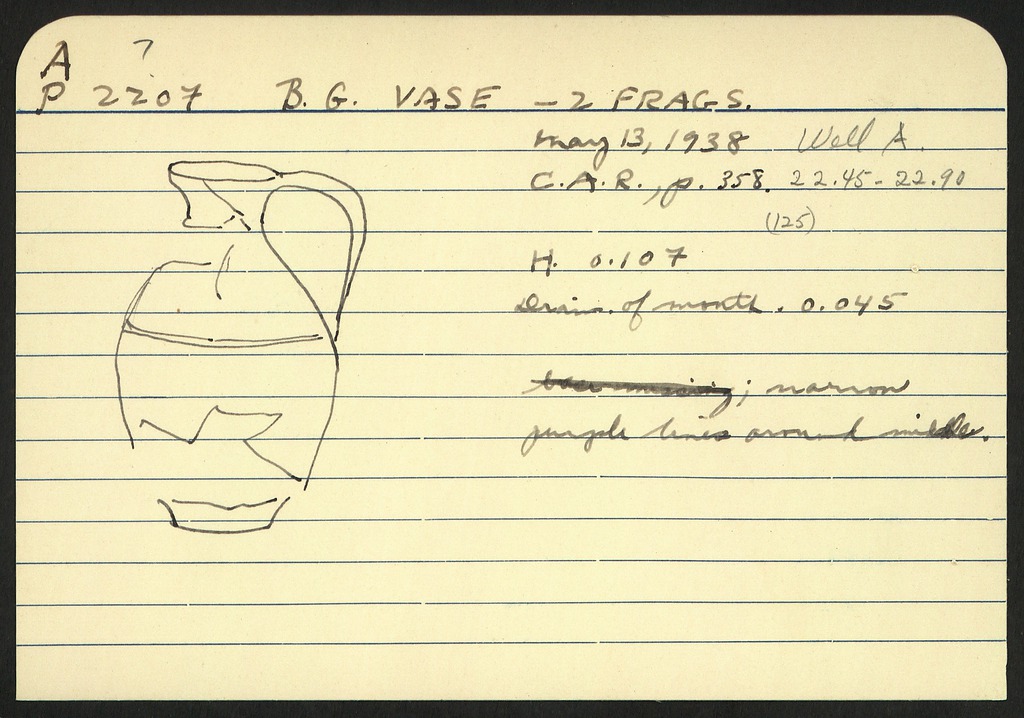 A ?
P 2207 B. G. VASE - 2 FRAGS.
May 13, 1938 Well A.
C.A.R., p. 358. 22.45-22.90
(125)
H. 0.107
Diam. of mouth. 0.045
base missing; narrow
purple lines around middle.